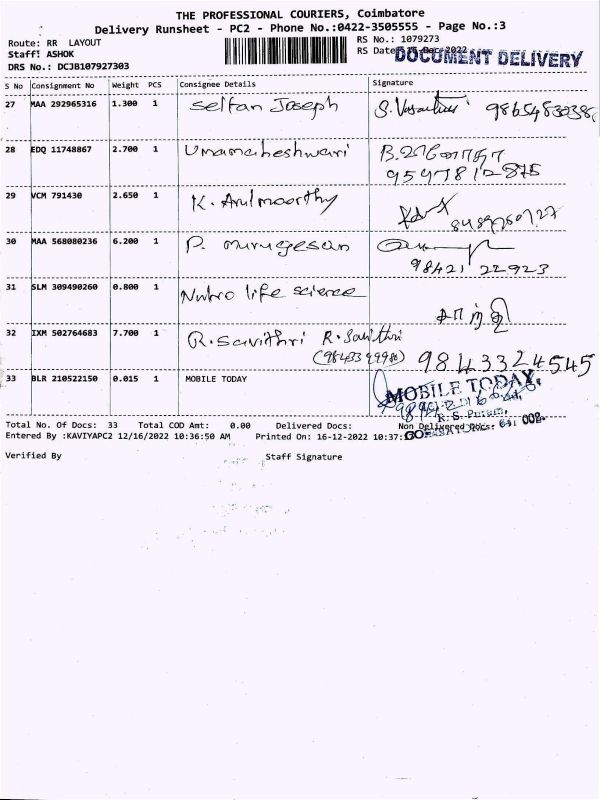 THE PROFESSIONAL COURIERS, Coimbatore
Delivery Runsheet - PC2 - Phone No.:0422-3505555 - Page No.:3
Route: RR LAYOUT
Staff: ASHOK
DRS No.: DCJB107927303
RS No.: 1079273
RS Date: 16-Dec-2022
DOCUMENT DELIVERY
S No Consignment No Weight PCS Consignee Details Signature
27 MAA 292965316 1.300 1 Selfan Joseph
28 EDQ 11748867 2.700 1 Umamaheshwari B.
9597812875
29 VCM 791430 2.650 1 K. Arulmoorthy
8489780727
30 MAA 568080236 6.200 1 P. murugesan
98421 22923
31 SLM 309490260 0.800 1 Nutro life science
32 IXM 502764683 7.700 1 R. Savithri R. Savithri
9843324545
33 BLR 210522150 0.015 1 MOBILE TODAY MOBILE TODAY,
R. S. Puram,
Total No. Of Docs: 33 Total COD Amt: 0.00 Delivered Docs: Non Delivered Docs:
COIMBATORE - 641 002.
Entered By :KAVIYAPC2 12/16/2022 10:36:50 AM Printed On: 16-12-2022 10:37:
Verified By Staff Signature